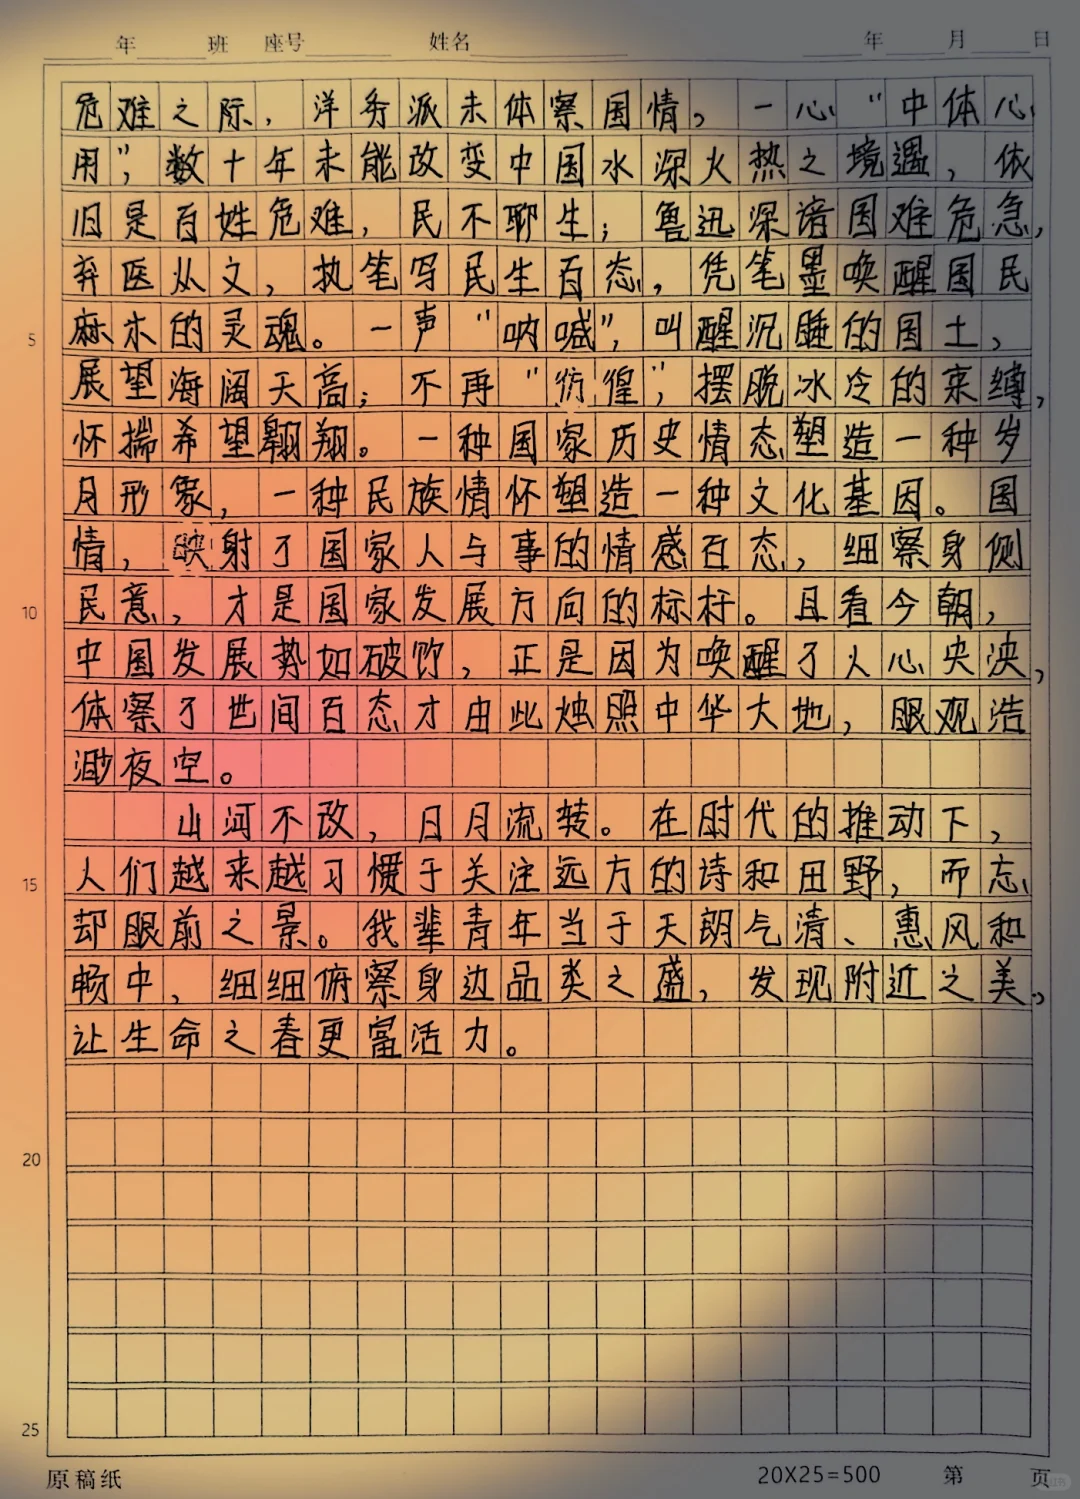 年 班 座号 姓名 年 月 日
危难之际，洋务派未体察国情，一心“中体心
用”，数十年未能改变中国水深火热之境遇，依
旧是百姓危难，民不聊生；鲁迅深谙国难危急，
弃医从文，执笔写民生百态，凭笔墨唤醒国民
5 麻木的灵魂。一声“呐喊”，叫醒沉睡的国土，
展望海阔天高；不再“彷徨”，摆脱冰冷的束缚，
怀揣希望翱翔。一种国家历史情态塑造一种岁
月形象，一种民族情怀塑造一种文化基因。国
情，映射了国家人与事的情感百态，细察身侧
10 民意，才是国家发展方向的标杆。且看今朝，
中国发展势如破竹，正是因为唤醒了人心央泱，
体察了世间百态才由此烛照中华大地，眼观浩
渺夜空。
山河不改，日月流转。在时代的推动下，
15 人们越来越习惯于关注远方的诗和田野，而忘
却眼前之景。我辈青年当于天朗气清、惠风和
畅中，细细俯察身边品类之盛，发现附近之美，
让生命之春更富活力。
20
25
原稿纸 20X25=500 第 页